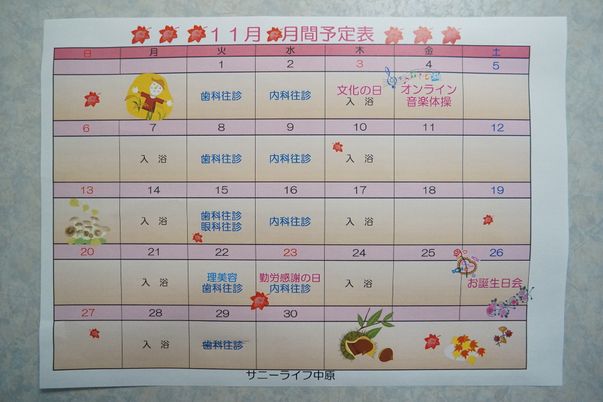 11月 月間予定表
日 月 火 水 木 金 土
1 2 3 4 5
歯科往診 内科往診 文化の日 オンライン
入 浴 音楽体操
6 7 8 9 10 11 12
入 浴 歯科往診 内科往診 入 浴
13 14 15 16 17 18 19
入 浴 歯科往診 内科往診 入 浴
眼科往診
20 21 22 23 24 25 26
入 浴 理美容 勤労感謝の日 入 浴 お誕生日会
歯科往診 内科往診
27 28 29 30
入 浴 歯科往診
サニーライフ中原